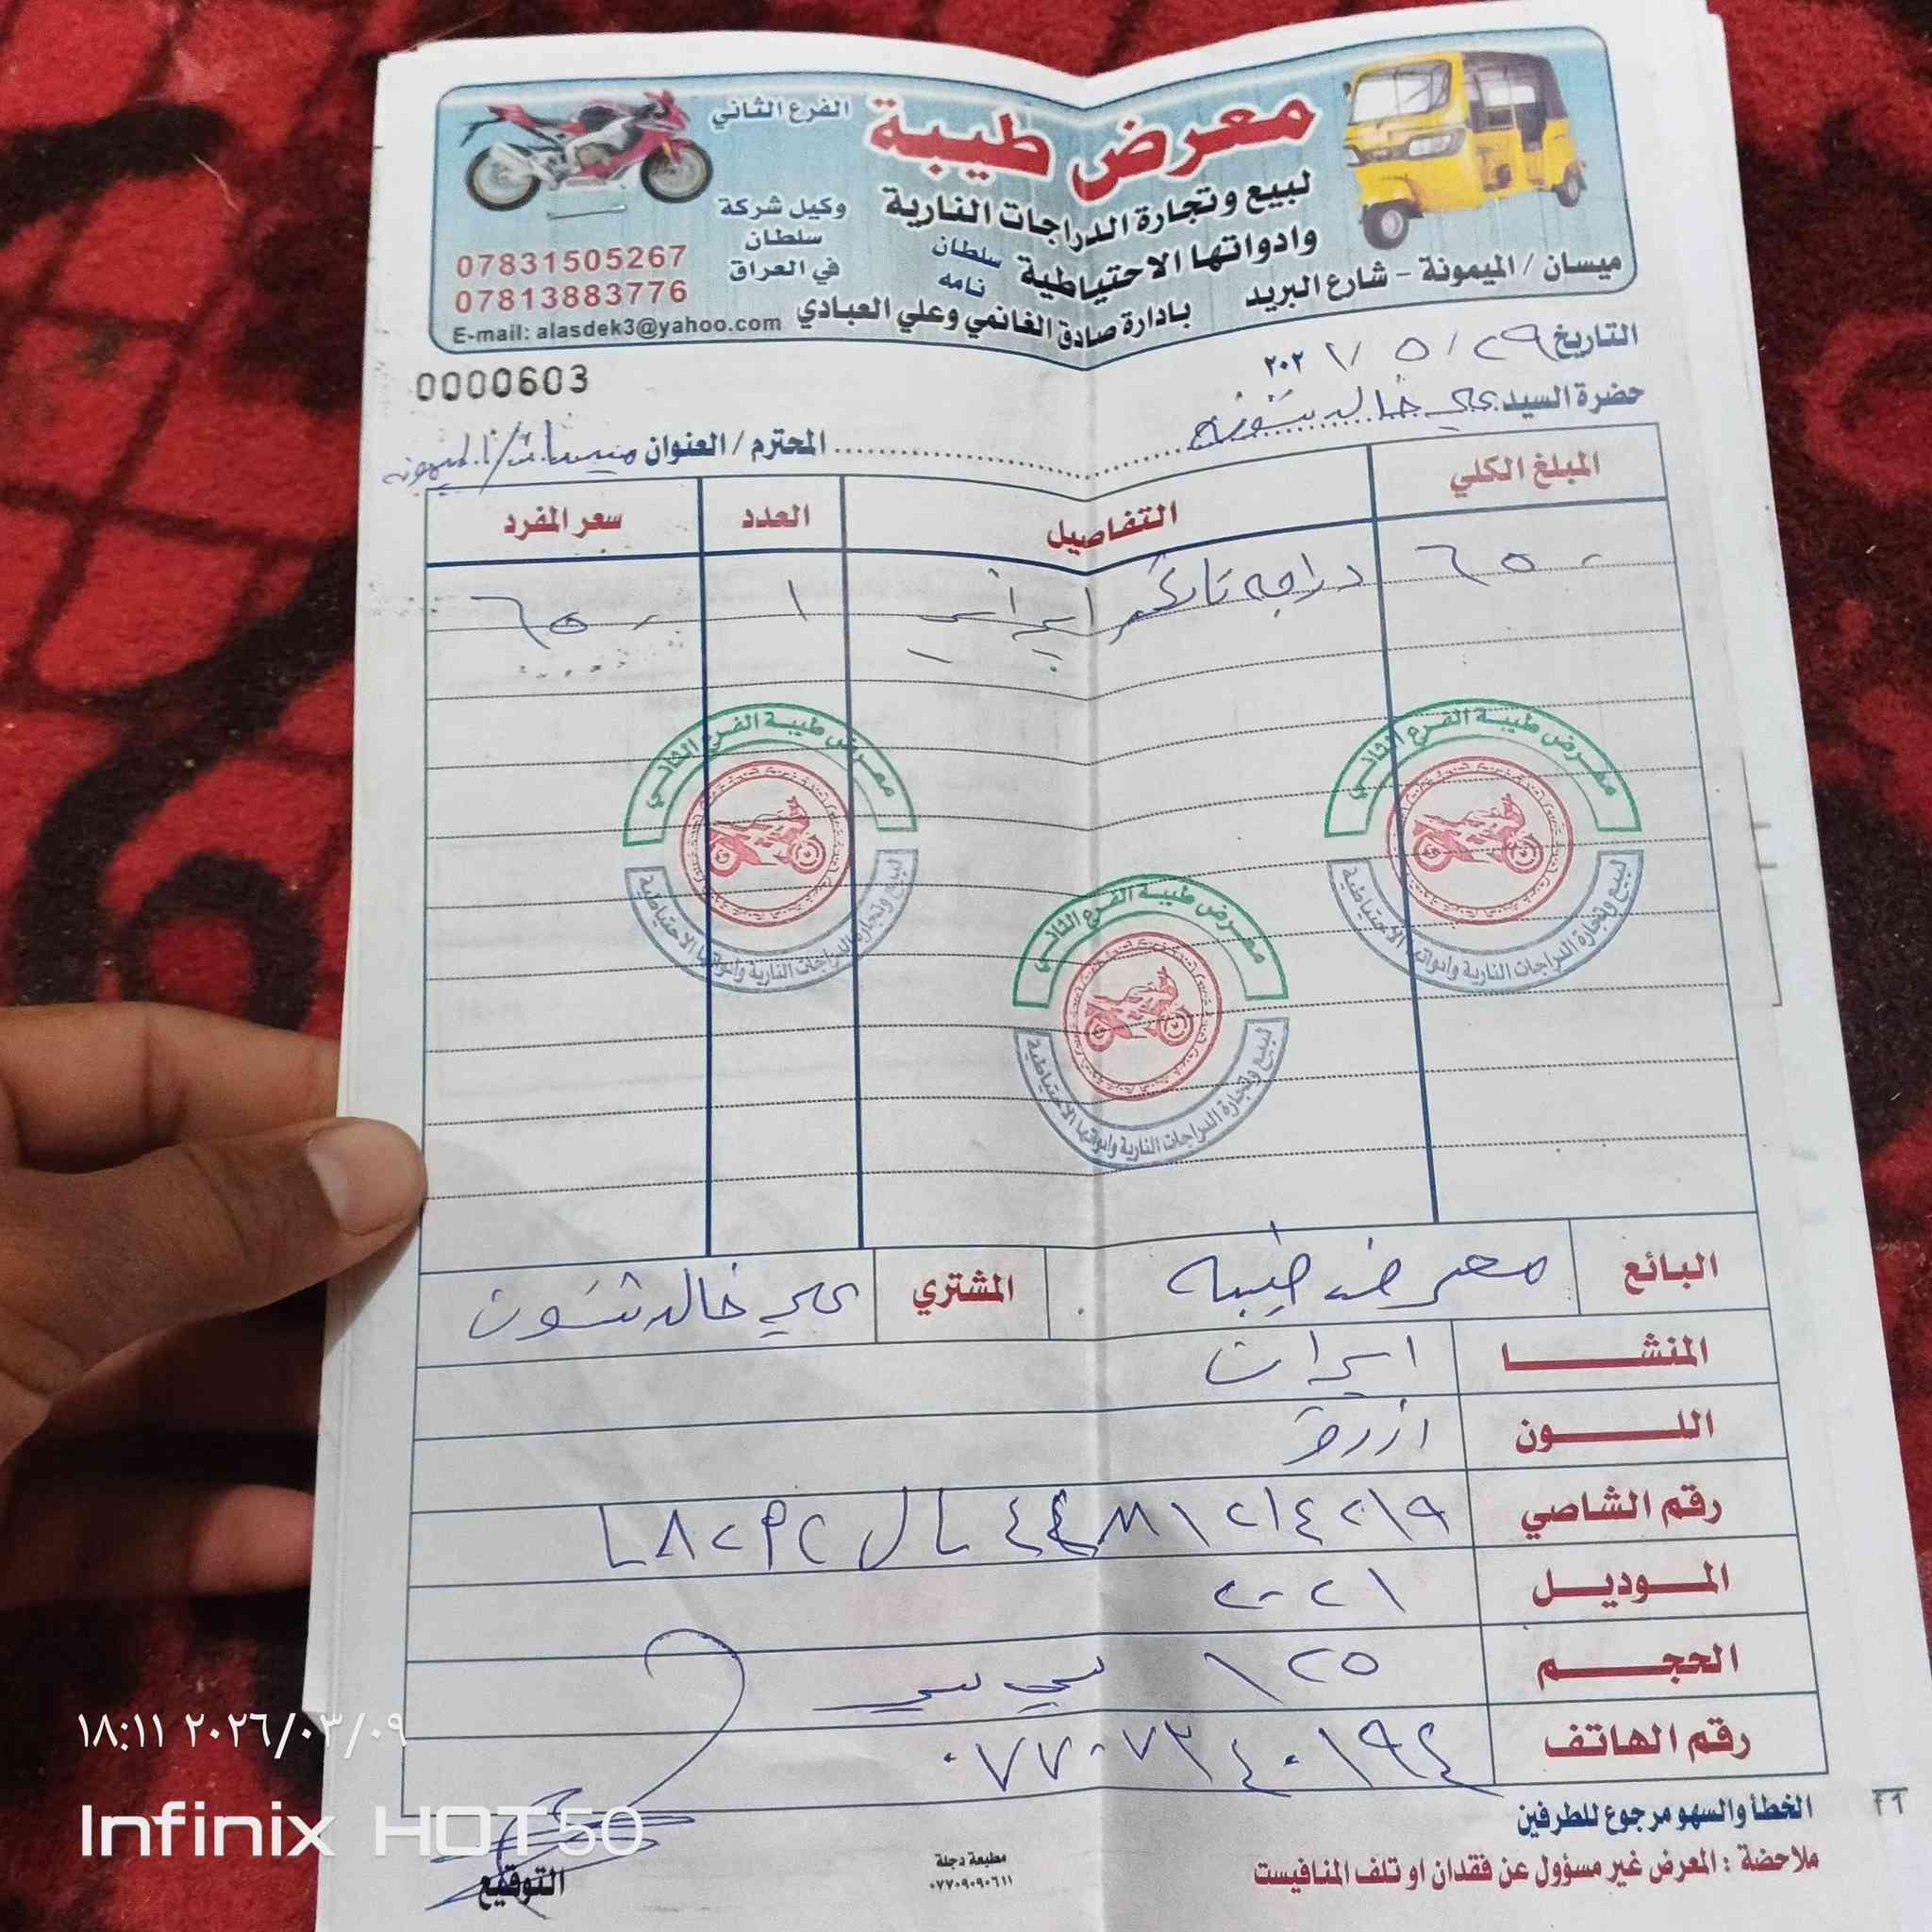 معرض طيبة
الفرع الثاني
لبيع وتجارة الدراجات النارية
وادواتها الاحتياطية
سلطان
نامه
وكيل شركة
سلطان
في العراق
07831505267
07813883776
ميسان / الميمونة - شارع البريد
بادارة صادق الغانمي وعلي العبادي
E-mail: alasdek3@yahoo.com
التاريخ ٢٩ / ٥ / ٢٠٢١
0000603
حضرة السيد علي خالد
المحترم / العنوان ميسان / الميمونه
المبلغ الكلي التفاصيل العدد سعر المفرد
٦٥٠ دراجه ايراني ١ ٦٥٠
معرض طيبة الفرع الثاني
لبيع وتجارة الدراجات النارية وادواتها الاحتياطية
معرض طيبة الفرع الثاني
لبيع وتجارة الدراجات النارية وادواتها الاحتياطية
معرض طيبة الفرع الثاني
لبيع وتجارة الدراجات النارية وادواتها الاحتياطية
البائع معرض طيبه المشتري علي خالد
المنشا ايران
اللون ازرق
رقم الشاصي
الموديل ٢٠٢١
الحجم ١٢٥ سي سي
رقم الهاتف ٠٧٧٠٧٣٤٠١٩٤
الخطأ والسهو مرجوع للطرفين
ملاحظة : المعرض غير مسؤول عن فقدان او تلف المنافيست
مطبعة دجلة
٠٧٧٠٩٠٩٠٦١١
التوقيع
١٨:١١ ٢٠٢٦/٠٣/٠٩
Infinix HOT50